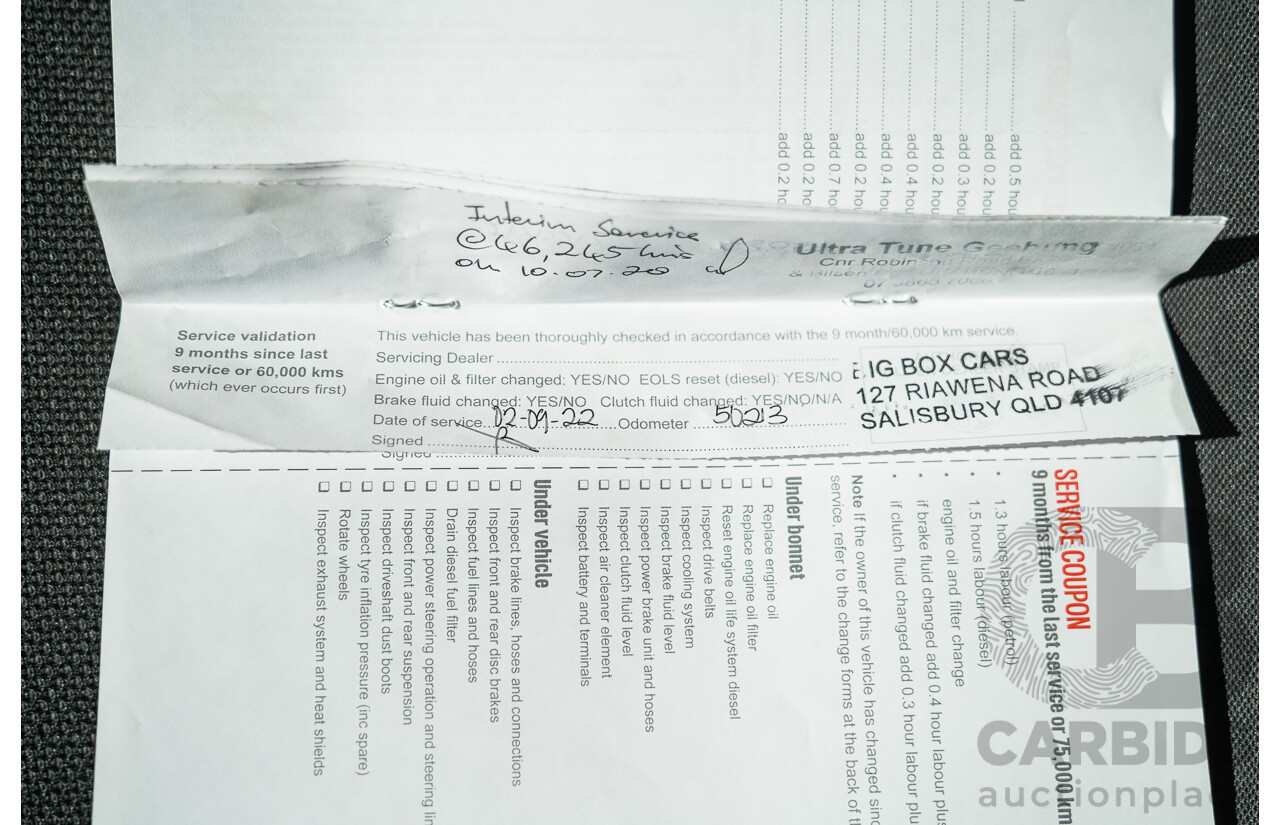 add 0.5 hou
add 0.2 hou
add 0.3 hou
add 0.2 hou
add 0.4 hou
add 0.4 hou
add 0.2 hou
add 0.7 hou
add 0.2 ho
add 0.2 ho
Interim Service
@46,245 kms
on 10.07.20
Ultra Tune Geebung
Cnr Robin
& Bilsen
Service validation
9 months since last
service or 60,000 kms
(which ever occurs first)
This vehicle has been thoroughly checked in accordance with the 9 month/60,000 km service.
Servicing Dealer
Engine oil & filter changed: YES/NO EOLS reset (diesel): YES/NO
Brake fluid changed: YES/NO Clutch fluid changed: YES/NO/N/A
Date of service 02-09-22 Odometer 50213
Signed
Signed
IG BOX CARS
127 RIAWENA ROAD
SALISBURY QLD 4107
SERVICE COUPON
9 months from the last service or 75,000 km
• 1.3 hours labour (petrol)
• 1.5 hours labour (diesel)
• engine oil and filter change
• if brake fluid changed add 0.4 hour labour plus
• if clutch fluid changed add 0.3 hour labour plu
Note If the owner of this vehicle has changed sinc
service, refer to the change forms at the back of th
Under bonnet
❑ Replace engine oil
❑ Replace engine oil filter
❑ Reset engine oil life system diesel
❑ Inspect drive belts
❑ Inspect cooling system
❑ Inspect brake fluid level
❑ Inspect power brake unit and hoses
❑ Inspect clutch fluid level
❑ Inspect air cleaner element
❑ Inspect battery and terminals
Under vehicle
❑ Inspect brake lines, hoses and connections
❑ Inspect front and rear disc brakes
❑ Inspect fuel lines and hoses
❑ Drain diesel fuel filter
❑ Inspect power steering operation and steering lin
❑ Inspect front and rear suspension
❑ Inspect driveshaft dust boots
❑ Inspect tyre inflation pressure (inc spare)
❑ Rotate wheels
❑ Inspect exhaust system and heat shields
CARBID
auctionplac